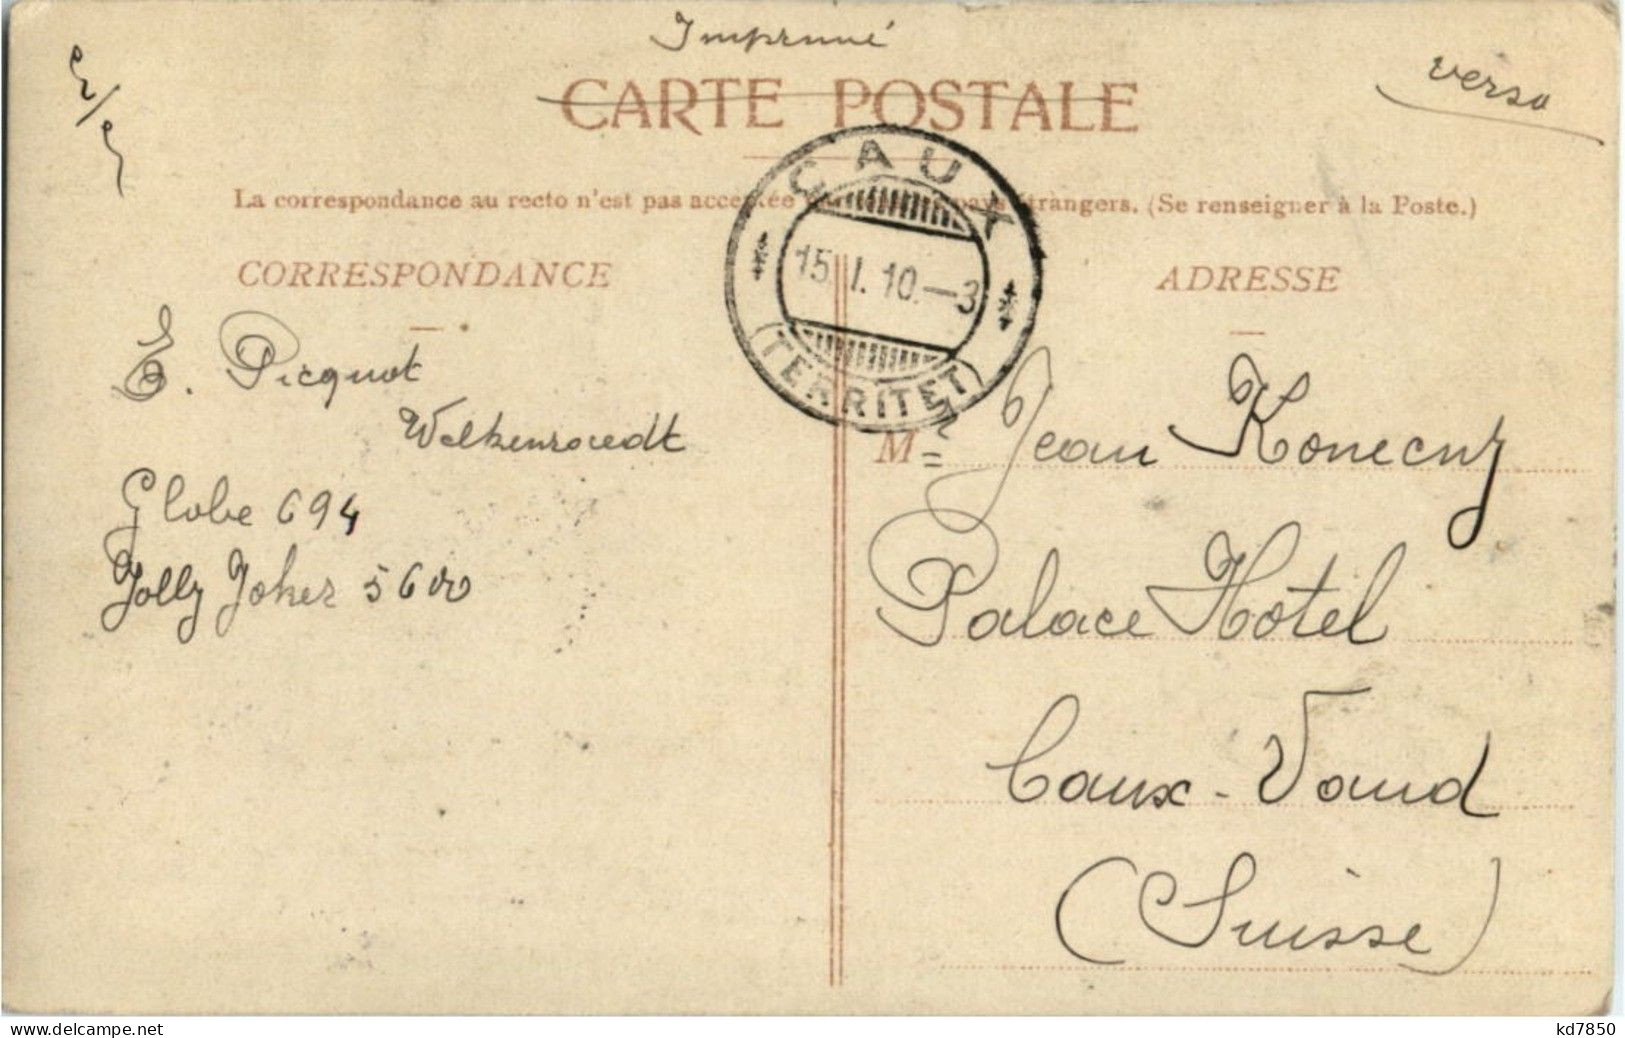 Imprimé
CARTE POSTALE
verso
La correspondance au recto n'est pas acceptée pays étrangers. (Se renseigner à la Poste.)
CORRESPONDANCE
ADRESSE
CAUX
15. I. 10.—3
(TERRITET)
E. Picquot
Welkenraedt
Globe 694
Jolly Joker 5600
Mr Jean Konecny
Palace Hotel
Caux - Vaud
(Suisse)
www.delcampe.net
kd7850